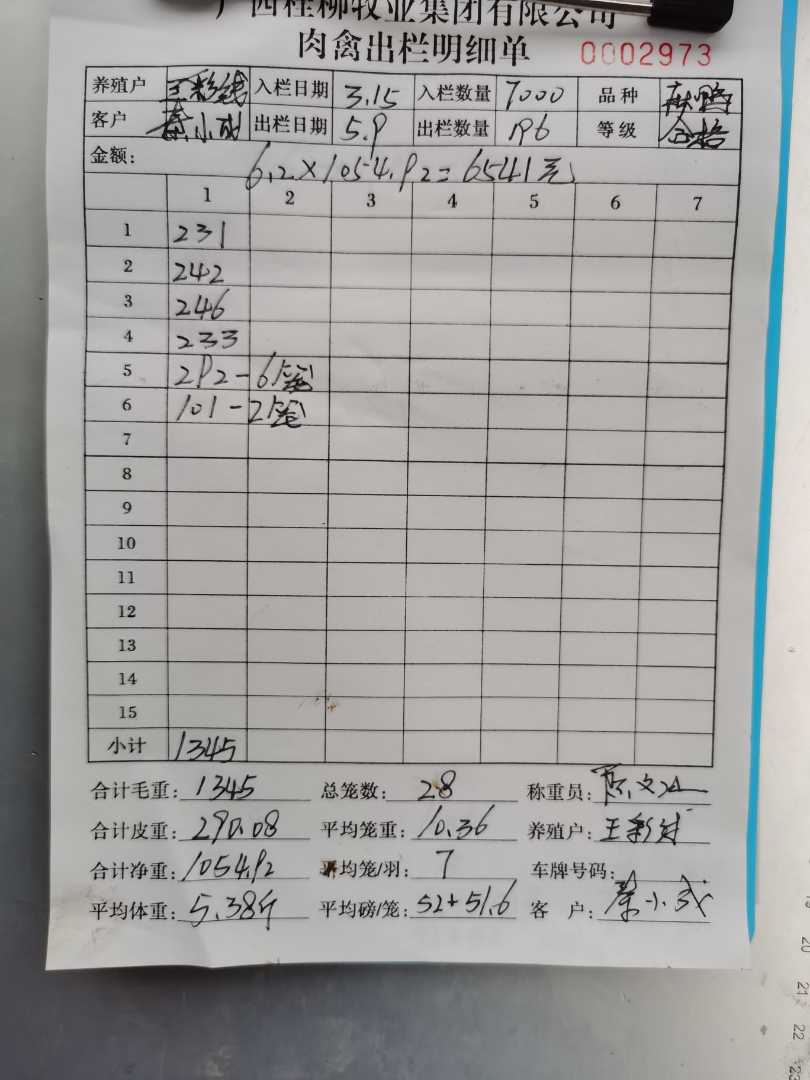 广西桂柳牧业集团有限公司
肉禽出栏明细单 0002973
养殖户 王彩线 入栏日期 3.15 入栏数量 7000 品种
客户 秦小成 出栏日期 5.9 出栏数量 196 等级 合格
金额: 6.2×1054.92=6541元
1 2 3 4 5 6 7
1 231
2 242
3 246
4 233
5 292-6笼
6 101-2笼
7
8
9
10
11
12
13
14
15
小计 1345
合计毛重: 1345 总笼数: 28 称重员:
合计皮重: 290.08 平均笼重: 10.36 养殖户: 王彩线
合计净重: 1054.92 平均笼/羽: 7 车牌号码:
平均体重: 5.38斤 平均磅/笼: 52+51.6 客户: 秦小成
19
20
21
22
23